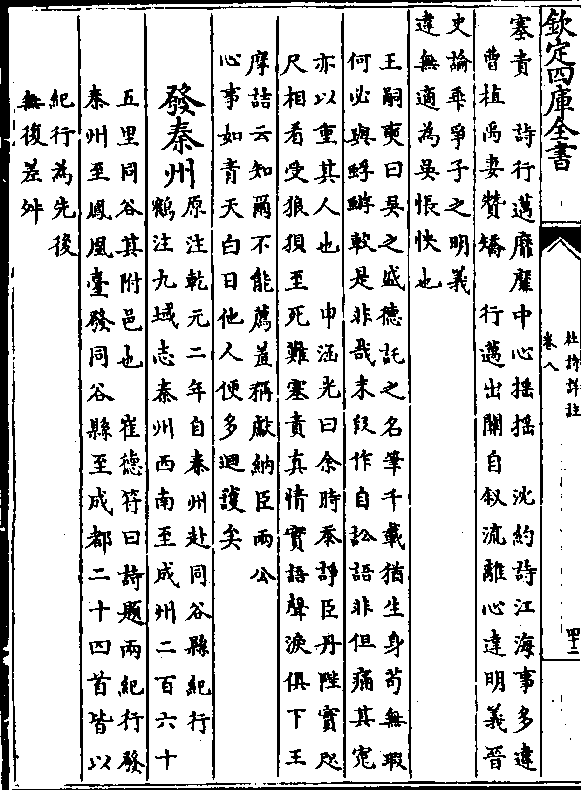 欽定四庫全書
杜詩詳註
卷八
四十二
塞責 詩行邁靡靡中心搖搖 沈約詩江海事多違
曹植禹妻贊矯 行邁出關自叙流離心違明義晉
史論乖爭子之明義
違無適為吳悵怏也
王嗣奭曰吳之盛德託之名筆千載猶生身茍無瑕
何必與蜉蝣較是非哉末段作自訟語非但痛其寃
亦以重其人也 申涵光曰余時忝諍臣丹陛實咫
尺相看受狼狽至死難塞責真情實語聲淚俱下王
摩詰云知爾不能薦羞稱獻納臣兩公
心事如青天白日他人便多迴護矣
發秦州
原注乾元二年自秦州赴同谷縣紀行
鶴注九域志秦州西南至成州二百六十
五里同谷其附邑也 崔德符曰詩題兩紀行發
秦州至鳳凰臺發同谷縣至成都二十四首皆以
紀行為先後
無復差舛